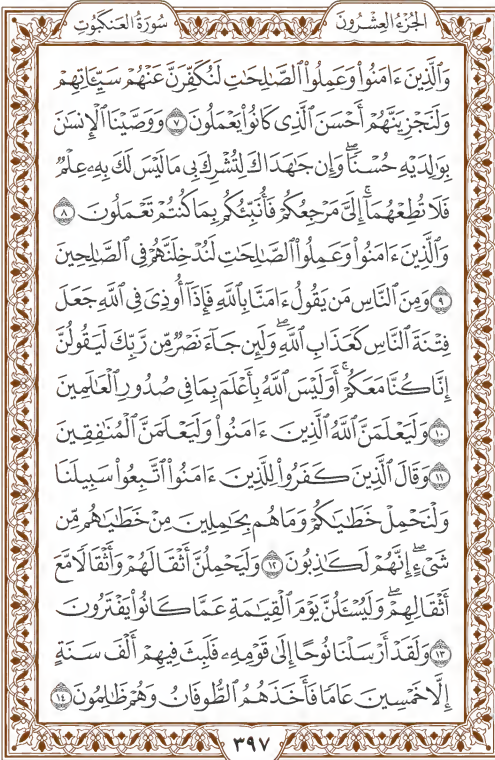 الجُزْءُ العِشْرُونَ سُورَةُ العَنكَبُوتِ
وَٱلَّذِينَ ءَامَنُوا۟ وَعَمِلُوا۟ ٱلصَّـٰلِحَـٰتِ لَنُكَفِّرَنَّ عَنْهُمْ سَيِّـَٔاتِهِمْ
وَلَنَجْزِيَنَّهُمْ أَحْسَنَ ٱلَّذِى كَانُوا۟ يَعْمَلُونَ ٧ وَوَصَّيْنَا ٱلْإِنسَـٰنَ
بِوَٰلِدَيْهِ حُسْنًا ۖ وَإِن جَـٰهَدَاكَ لِتُشْرِكَ بِى مَا لَيْسَ لَكَ بِهِۦ عِلْمٌ
فَلَا تُطِعْهُمَآ ۚ إِلَىَّ مَرْجِعُكُمْ فَأُنَبِّئُكُم بِمَا كُنتُمْ تَعْمَلُونَ ٨
وَٱلَّذِينَ ءَامَنُوا۟ وَعَمِلُوا۟ ٱلصَّـٰلِحَـٰتِ لَنُدْخِلَنَّهُمْ فِى ٱلصَّـٰلِحِينَ
٩ وَمِنَ ٱلنَّاسِ مَن يَقُولُ ءَامَنَّا بِٱللَّهِ فَإِذَآ أُوذِىَ فِى ٱللَّهِ جَعَلَ
فِتْنَةَ ٱلنَّاسِ كَعَذَابِ ٱللَّهِ ۖ وَلَئِن جَآءَ نَصْرٌ مِّن رَّبِّكَ لَيَقُولُنَّ
إِنَّا كُنَّا مَعَكُمْ ۚ أَوَلَيْسَ ٱللَّهُ بِأَعْلَمَ بِمَا فِى صُدُورِ ٱلْعَـٰلَمِينَ
١٠ وَلَيَعْلَمَنَّ ٱللَّهُ ٱلَّذِينَ ءَامَنُوا۟ وَلَيَعْلَمَنَّ ٱلْمُنَـٰفِقِينَ
١١ وَقَالَ ٱلَّذِينَ كَفَرُوا۟ لِلَّذِينَ ءَامَنُوا۟ ٱتَّبِعُوا۟ سَبِيلَنَا
وَلْنَحْمِلْ خَطَـٰيَـٰكُمْ وَمَا هُم بِحَـٰمِلِينَ مِنْ خَطَـٰيَـٰهُم مِّن
شَىْءٍ ۖ إِنَّهُمْ لَكَـٰذِبُونَ ١٢ وَلَيَحْمِلُنَّ أَثْقَالَهُمْ وَأَثْقَالًا مَّعَ
أَثْقَالِهِمْ ۖ وَلَيُسْـَٔلُنَّ يَوْمَ ٱلْقِيَـٰمَةِ عَمَّا كَانُوا۟ يَفْتَرُونَ
١٣ وَلَقَدْ أَرْسَلْنَا نُوحًا إِلَىٰ قَوْمِهِۦ فَلَبِثَ فِيهِمْ أَلْفَ سَنَةٍ
إِلَّا خَمْسِينَ عَامًا فَأَخَذَهُمُ ٱلطُّوفَانُ وَهُمْ ظَـٰلِمُونَ ١٤
٣٩٧